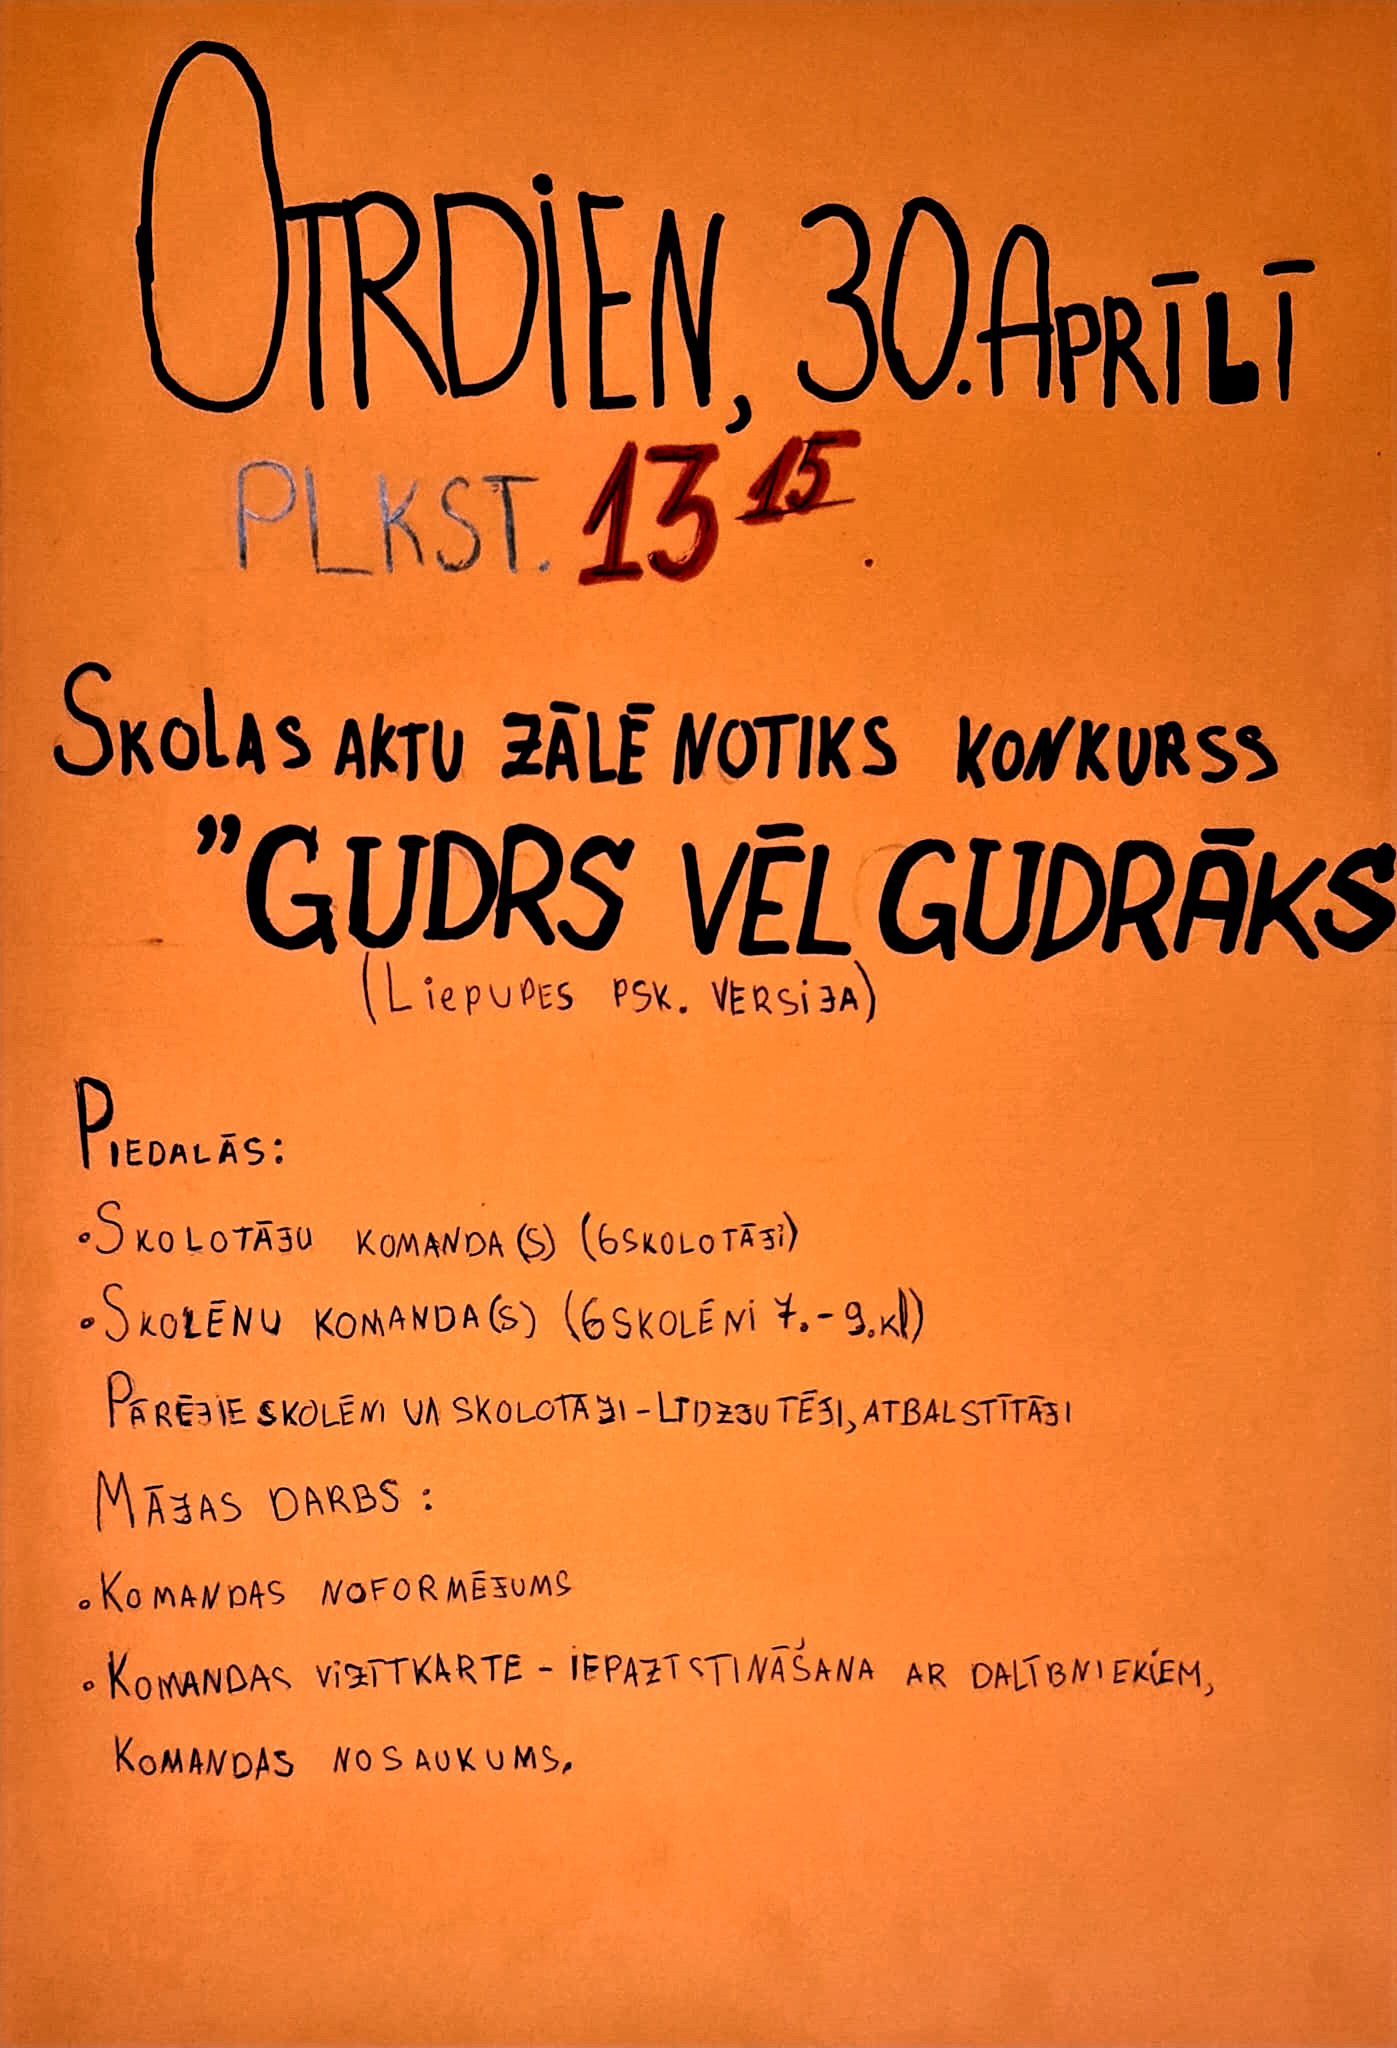 OTRDIEN, 30. APRĪLĪ
PLKST. 13 15.
SKOLAS AKTU ZĀLĒ NOTIKS KONKURSS
"GUDRS VĒL GUDRĀKS
(LIEPUPES PSK. VERSIJA)
PIEDALĀS:
• SKOLOTĀJU KOMANDA(S) (6 SKOLOTĀJI)
• SKOLĒNU KOMANDA(S) (6 SKOLĒNI 7.-9.kl)
PĀRĒJIE SKOLĒNI UN SKOLOTĀJI - LĪDZJUTĒJI, ATBALSTĪTĀJI
MĀJAS DARBS:
• KOMANDAS NOFORMĒJUMS
• KOMANDAS VIZĪTKARTE - IEPAZĪSTINĀŠANA AR DALĪBNIEKIEM,
KOMANDAS NOSAUKUMS.